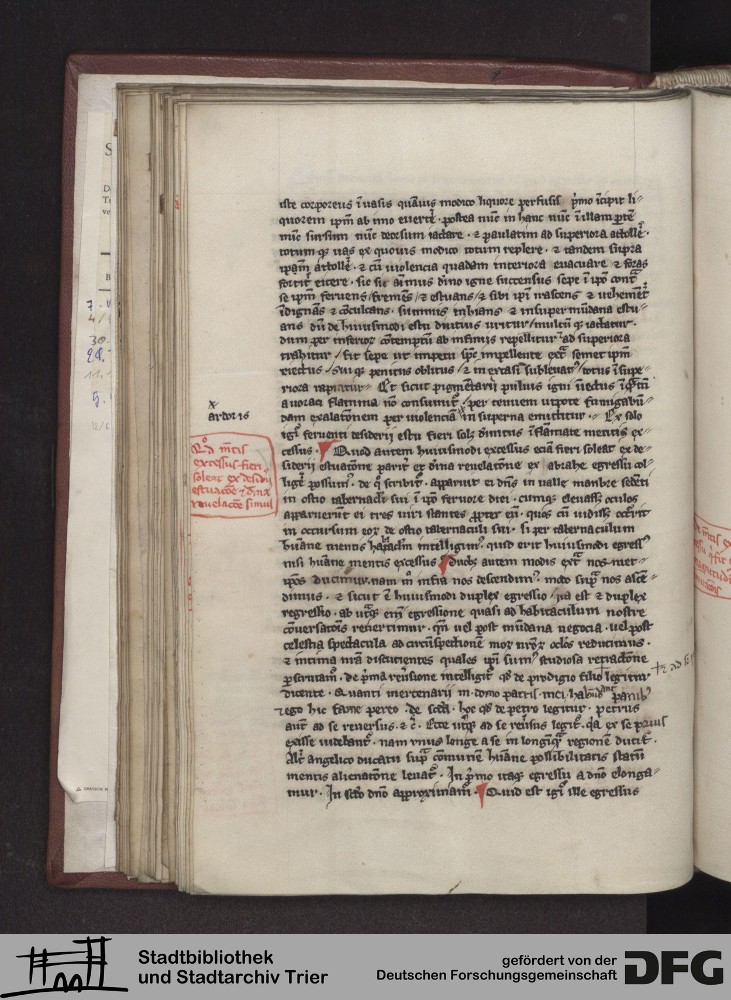 iste corporeus ī uasis quāuis modico liquore perfusis pͥmo īcipit li⸗
quorem ip̄m ab imo euert̄e. postea nūc in hanc nūc ī illam p̲tē
nūc sursum nūc deorsum iactare. ⁊ paulatim ad superiora attoll̄e.
totum qꝫ uas ex quouis modico totum replere. ⁊ tandem supra
ip̄am attoll̄e. ⁊ cū uiolencia quadam interiora euacuare ⁊ foras
eicere. sic sic aīmus diuīo igne succensus sepe ī ip̄o
se ip̄m feruens / fremēs / ⁊ estuans / ⁊ sibi ip̄i irascens ⁊ uehemēt̄
īdignās ⁊ ꝯculcans. summis inhians ⁊ insuper mūdana
ans dū de huiusmodi estu diutius uritur / multū qꝫ iactatur.
dum per inferioꝝ ꝯtemptū ab infimis repellitur ad superiora
trahitur / fit sepe ut impetu sp̄c impellente ext̾ semet ip̄m
eiectus / sui qꝫ penitus oblitus / ⁊ in extasī subleuatꝰ / totus ī supe⸗
riora rapiatur. Et sicut pigmētarii puluis igni iniectus
flamma nō consumit᷑ / per tenuem utpote
dam exalatōnem per uiolenciā in superna emittitur. Ex solo
x ardoris
igit᷑ feruenti desiderii estu fieri solꝫ diuinitus ī flāmate mentis ex⸗
cessus. Quod autem huiusmodi excessus eciā fieri soleat ex de⸗
siderii estuatōne parit̄ ex diuina reuelatōne ex abrahe egressu col⸗
ligē possumꝰ. de qͦ scribit᷑. apparuit ei dn̄s in ualle mambre sedēti
in ostio tabernacli sui ī ip̄o feruore diei. cumqꝫ eleuass̄ oculos
apparuerunt ei tres uiri stantes ꝓpter eū. quos cū uidiss̄ occͬrit
in occursum eoꝝ de ostio tabernaculi sui. Si per tabernaculum
hūane mentis hͣitaclm̄ intelligimꝰ. quid erit huiusmodi egressꝰ
nisi hūane mentis excessus. Duobꝫ autem modis extͣ nos met⸗
ip̄os ducimur. nam mͦ infra nos descendimꝰ. modo supͣ nos ascē⸗
dimus. ⁊ sicut ē huiusmodi duplex egressio / ita est ⁊ duplex
regressio. ab utͣqꝫ em̄ egressione quasi ad habitaculum nostre
ꝯuersatōis reuertimur. qn̄ uel post mūdana negocia. uel post
celestia spectacula ad circūspectionem moꝝ nr̄oꝝ oclōs reducimus.
⁊ intima nr̄a discutientes quales ip̄i sumꝰ studiosa retractōne
perscrutam᷑. de pͥma reuͥsione intelligit᷑ qd̄ de prodigio filio legitur
dicente. Quanti mercenarii in domo patris mei habūdāt panibꝰ
ego hic fame pereo. de scd̄a. hoc qd̄ de petro legitur. petrus
aūt ad se reuersus. ⁊ c̄. Ecce utͬqꝫ ad se reuͥsus legit᷑. qͥa ex se prius
exisse uidebant᷑. nam vnus longe a se in longīqͣ regionē ducit᷑.
Alt̄ angelico ducatu supͣ comunem hūane possibilitatis statū
mentis alienatōne leuat᷑. In pͥmo itaqꝫ egressu a dn̄o elonga⸗
mur. In scd̄o dn̄o appropinquam᷑. Quid est igit᷑ ille egressus
Qd̄ mētis
excessus fieri
soleat ex desiderii
estuatōne ⁊ diuīa
reuelatōne simul
Stadtbibliothek
und Stadtarchiv Trier
gefördert von der
Deutschen Forschungsgemeinschaft
DFG